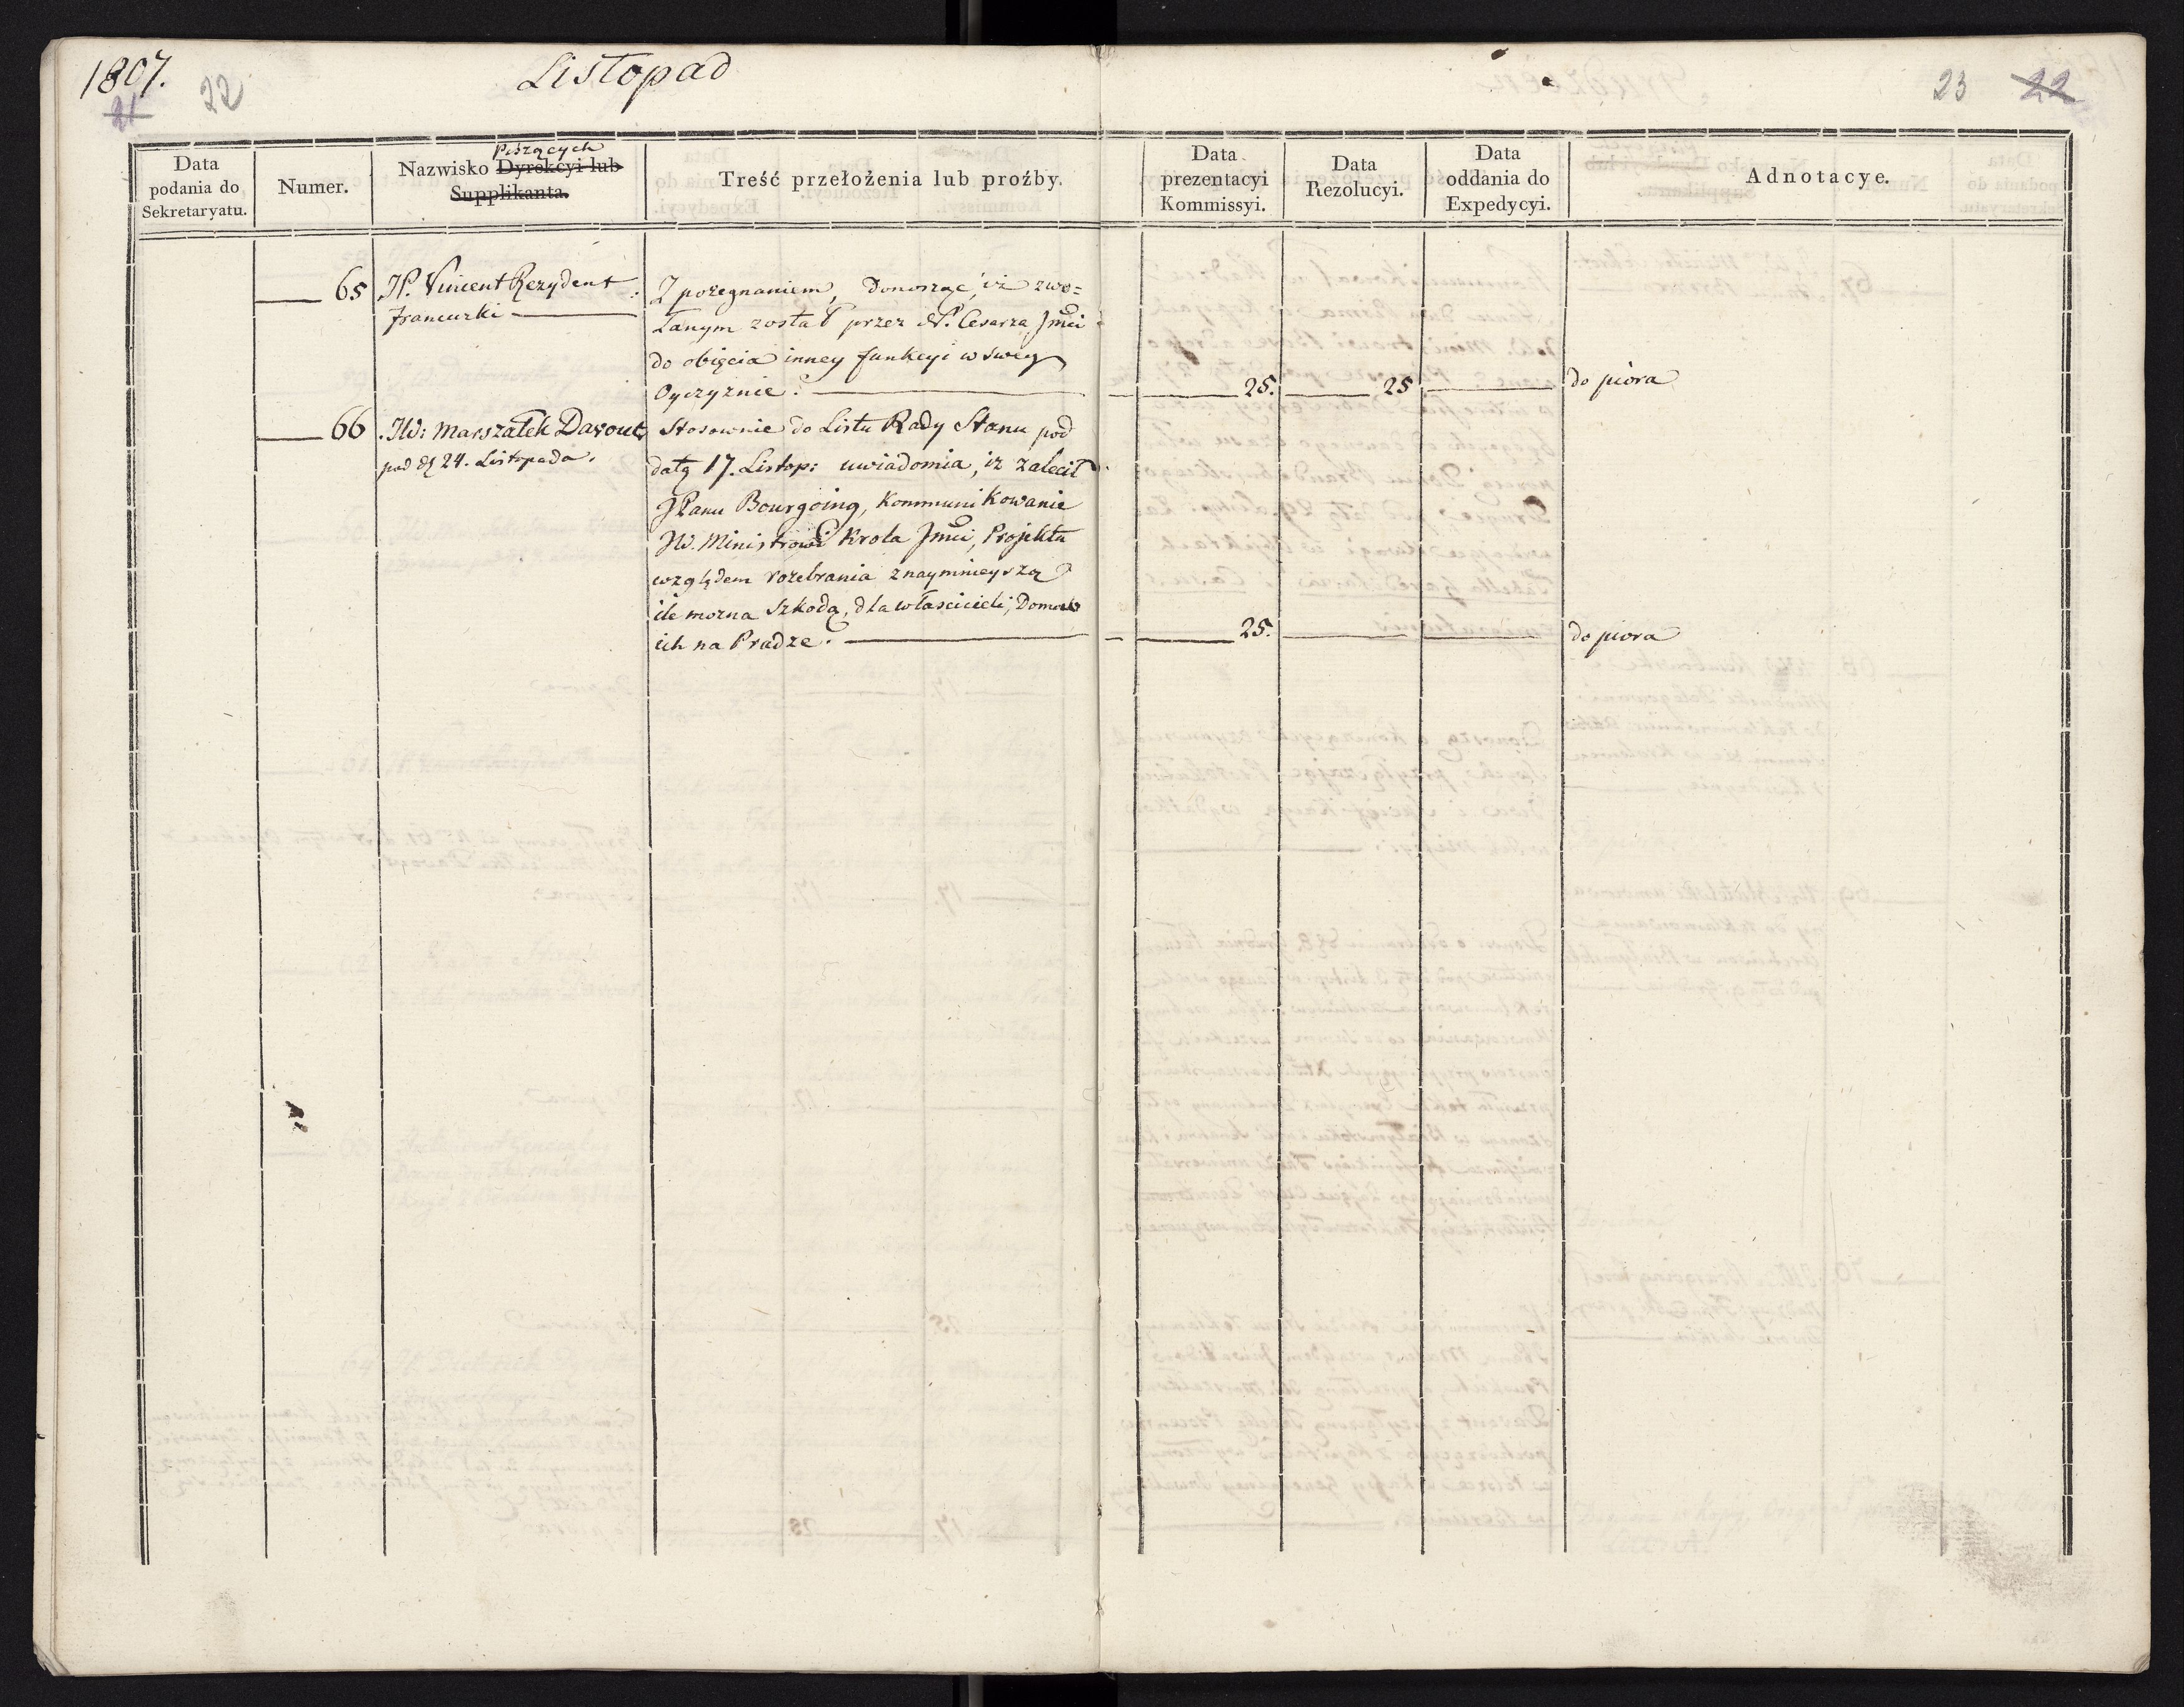 1807.
Listopad
21 22
23 22
Data podania do Sekretaryatu.
Numer.
Nazwisko Dyrekcyi lub Supplikanta.
Piszących
Treść przełożenia lub proźby.
Data prezentacyi Kommissyi.
Data Rezolucyi.
Data oddania do Expedycyi.
Adnotacye.
65 JP. Vincent Rezydent
francuzki
Z pożegnaniem, donosząc, iż zwo=
łanym został przez N. Cesarza Jmci
do obięcia inney funkcyi w swey
Oyczyznie.
25. 25 do piora
66 JW: Marszałek Davout
pod dą 24. Listopada.
Stosownie do Listu Rady Stanu pod
datą 17. Listop: uwiadomia, iż zalecił
JPanu Bourgoing, Kommunikowanie
JW. Ministrowi Krola Jmci, Projektu
względem rozebrania z naymnieyszą
ile można szkodą, dla właścicieli, Domow
ich na Pradze.
25. do piora